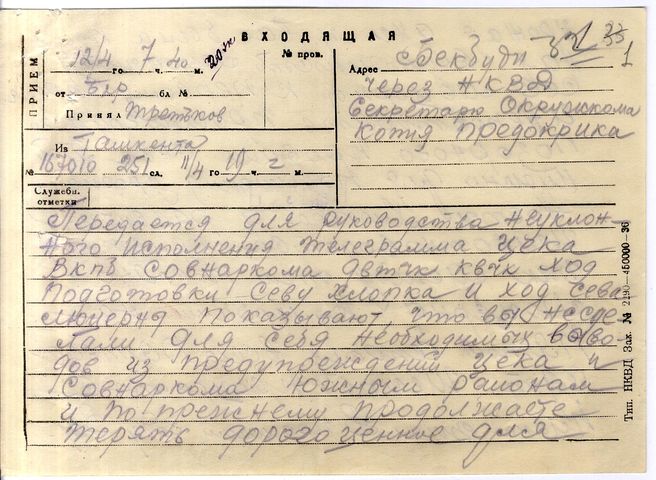 ВХОДЯЩАЯ
ПРИЕМ
12/4 го 7 ч. 40 м.
20 ж
№ пров.
от бл №
Принял Третьяков
Из Ташкента
№ 167010 251 сл. 11/4 го 19 ч. м.
Служебн.
отметки
Адрес
через НКВД
Секретарю Окружкома
Копия Предокрика
Передается для руководства неуклон-
ного исполнения телеграмма Цека
Вкпб совнаркома двтчк квчк ход
подготовки севу хлопка и ход сева
люцерны показывают что вы не сде
лали для себя необходимых выво-
дов из предупреждений Цека и
Совнаркома южным районам
и по прежнему продолжаете
терять драгоценное для
Тип. НКВД Зак. № 2290—450000—36